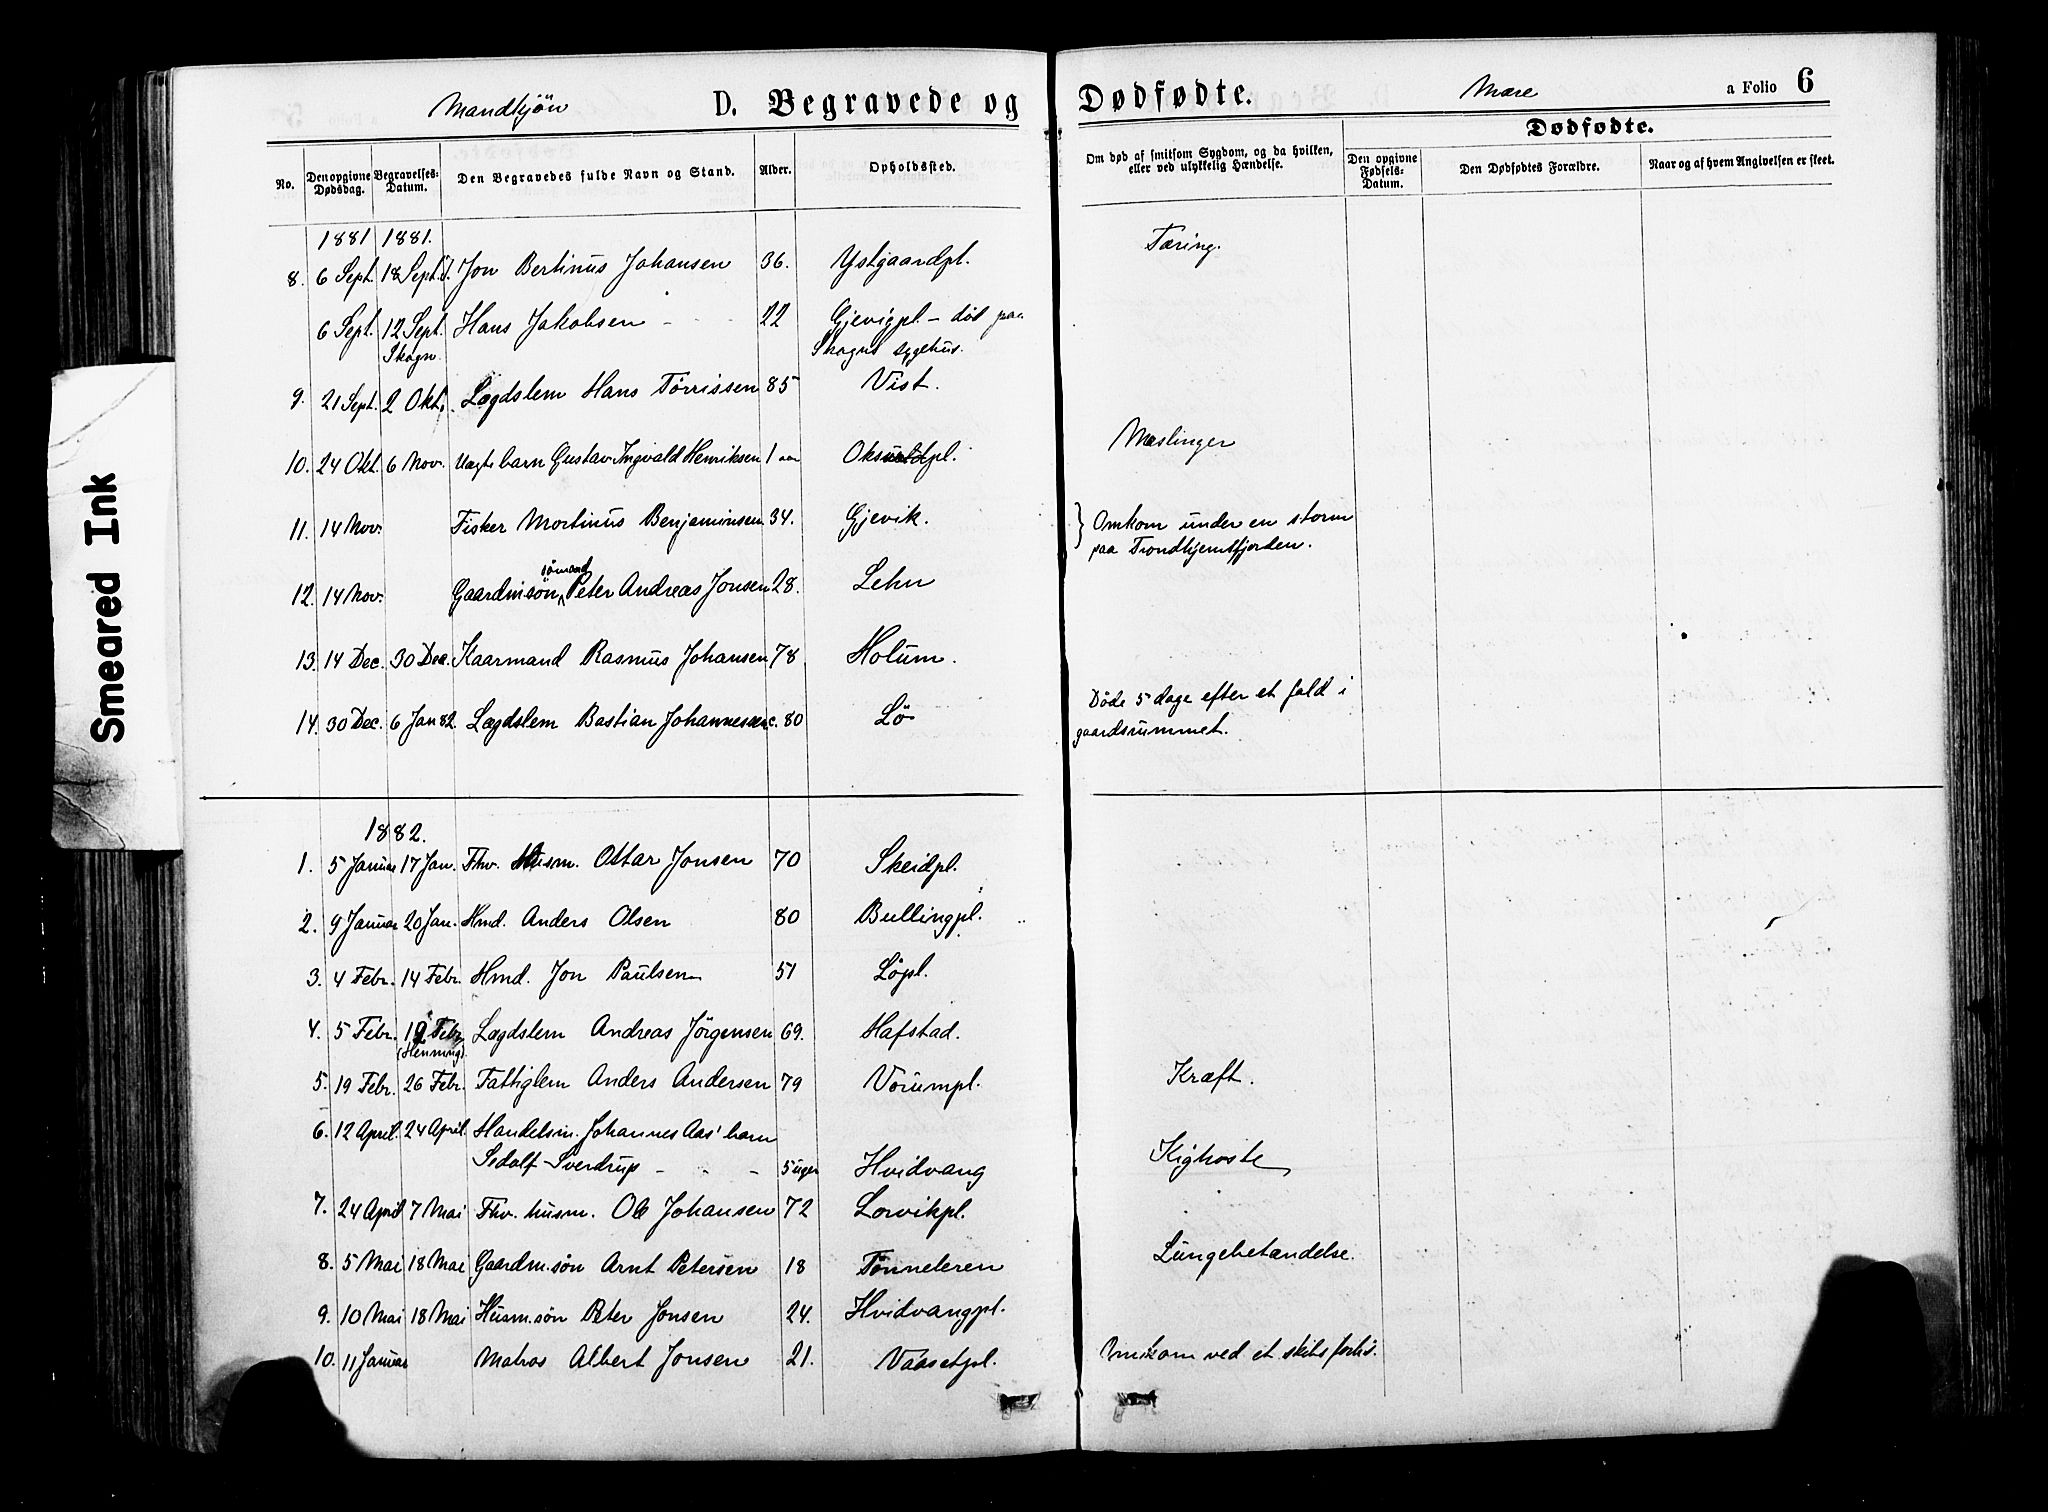 Smeared Ink
Mandkjøn D. Begravede og Dødfødte. Mære a Folio 6
Dødfødte.
No. Den opgivne Dødsdag. Begravelses-Datum. Den Begravedes fulde Navn og Stand. Alder. Opholdssted. Om død af smitsom Sygdom, og da hvilken, eller ved ulykkelig Hændelse. Den opgivne Fødsels-Datum. Den Dødfødtes Forældre. Naar og af hvem Angivelsen er skeet.
1881 1881.
8. 6 Sept. 18 Sept. Jon Bertinus Johansen 36. Ystgaardpl. Tæring.
6 Sept. 12 Sept. Hans Jakobsen - - - 22 Gjevigpl. - död paa
Skogn. Skogns sygehus.
9. 21 Sept. 2 Okt. Lægdslem Hans Tørrissen 85 Vist.
10. 24 Okt. 6 Nov. Uægte barn Gustav Ingvald Henriksen 1 aar pl. Mæslinger
11. 14 Nov. Fisker Mortinus Benjaminsen 34. Gjevik. } Omkom under en storm
paa Trondhjemsfjorden.
sömand
12. 14 Nov. Gaardmsön Peter Andreas Jonsen 28. Lehn
13. 14 Dec. 30 Dec. Kaarmand Rasmus Johansen 78 Holum.
14. 30 Dec. 6 Jan 82. Lægdslem Bastian Johannessen c. 80 Lö Döde 5 dage efter et fald i
gaardsrummet.
1882.
1. 5 Januar 17 Jan. Fhv. Husm. Ottar Jonsen 70 Skeidpl.
2. 9 Januar 20 Jan. Hmd. Anders Olsen 80 Bullingpl.
3. 4 Febr. 14 Febr. Hmd. Jon Paulsen 51 Löpl.
4. 5 Febr. 19 Febr. Lægdslem Andreas Jörgensen 69. Hafstad.
(Henning).
5. 19 Febr. 26 Febr. Fattiglem Anders Andersen 79 Vorumpl. Kræft.
6. 12 April. 24 April. Handelsm. Johannes Aas' barn
Sedolf Sverdrup - - - 5 uger Hvidvang Kighoste
7. 24 April 7 Mai Fhv. husm. Ole Johansen 72 Lorvikpl.
8. 5 Mai 18 Mai Gaardm.søn Arnt Petersen 18 Tønneleren Lungebetændelse.
9. 10 Mai 18 Mai Husm.søn Peter Jonsen 24. Hvidvangpl.
10. 11 Januar Matros Albert Jonsen 21. Vaasetpl. Omkom ved et skibs forlis.